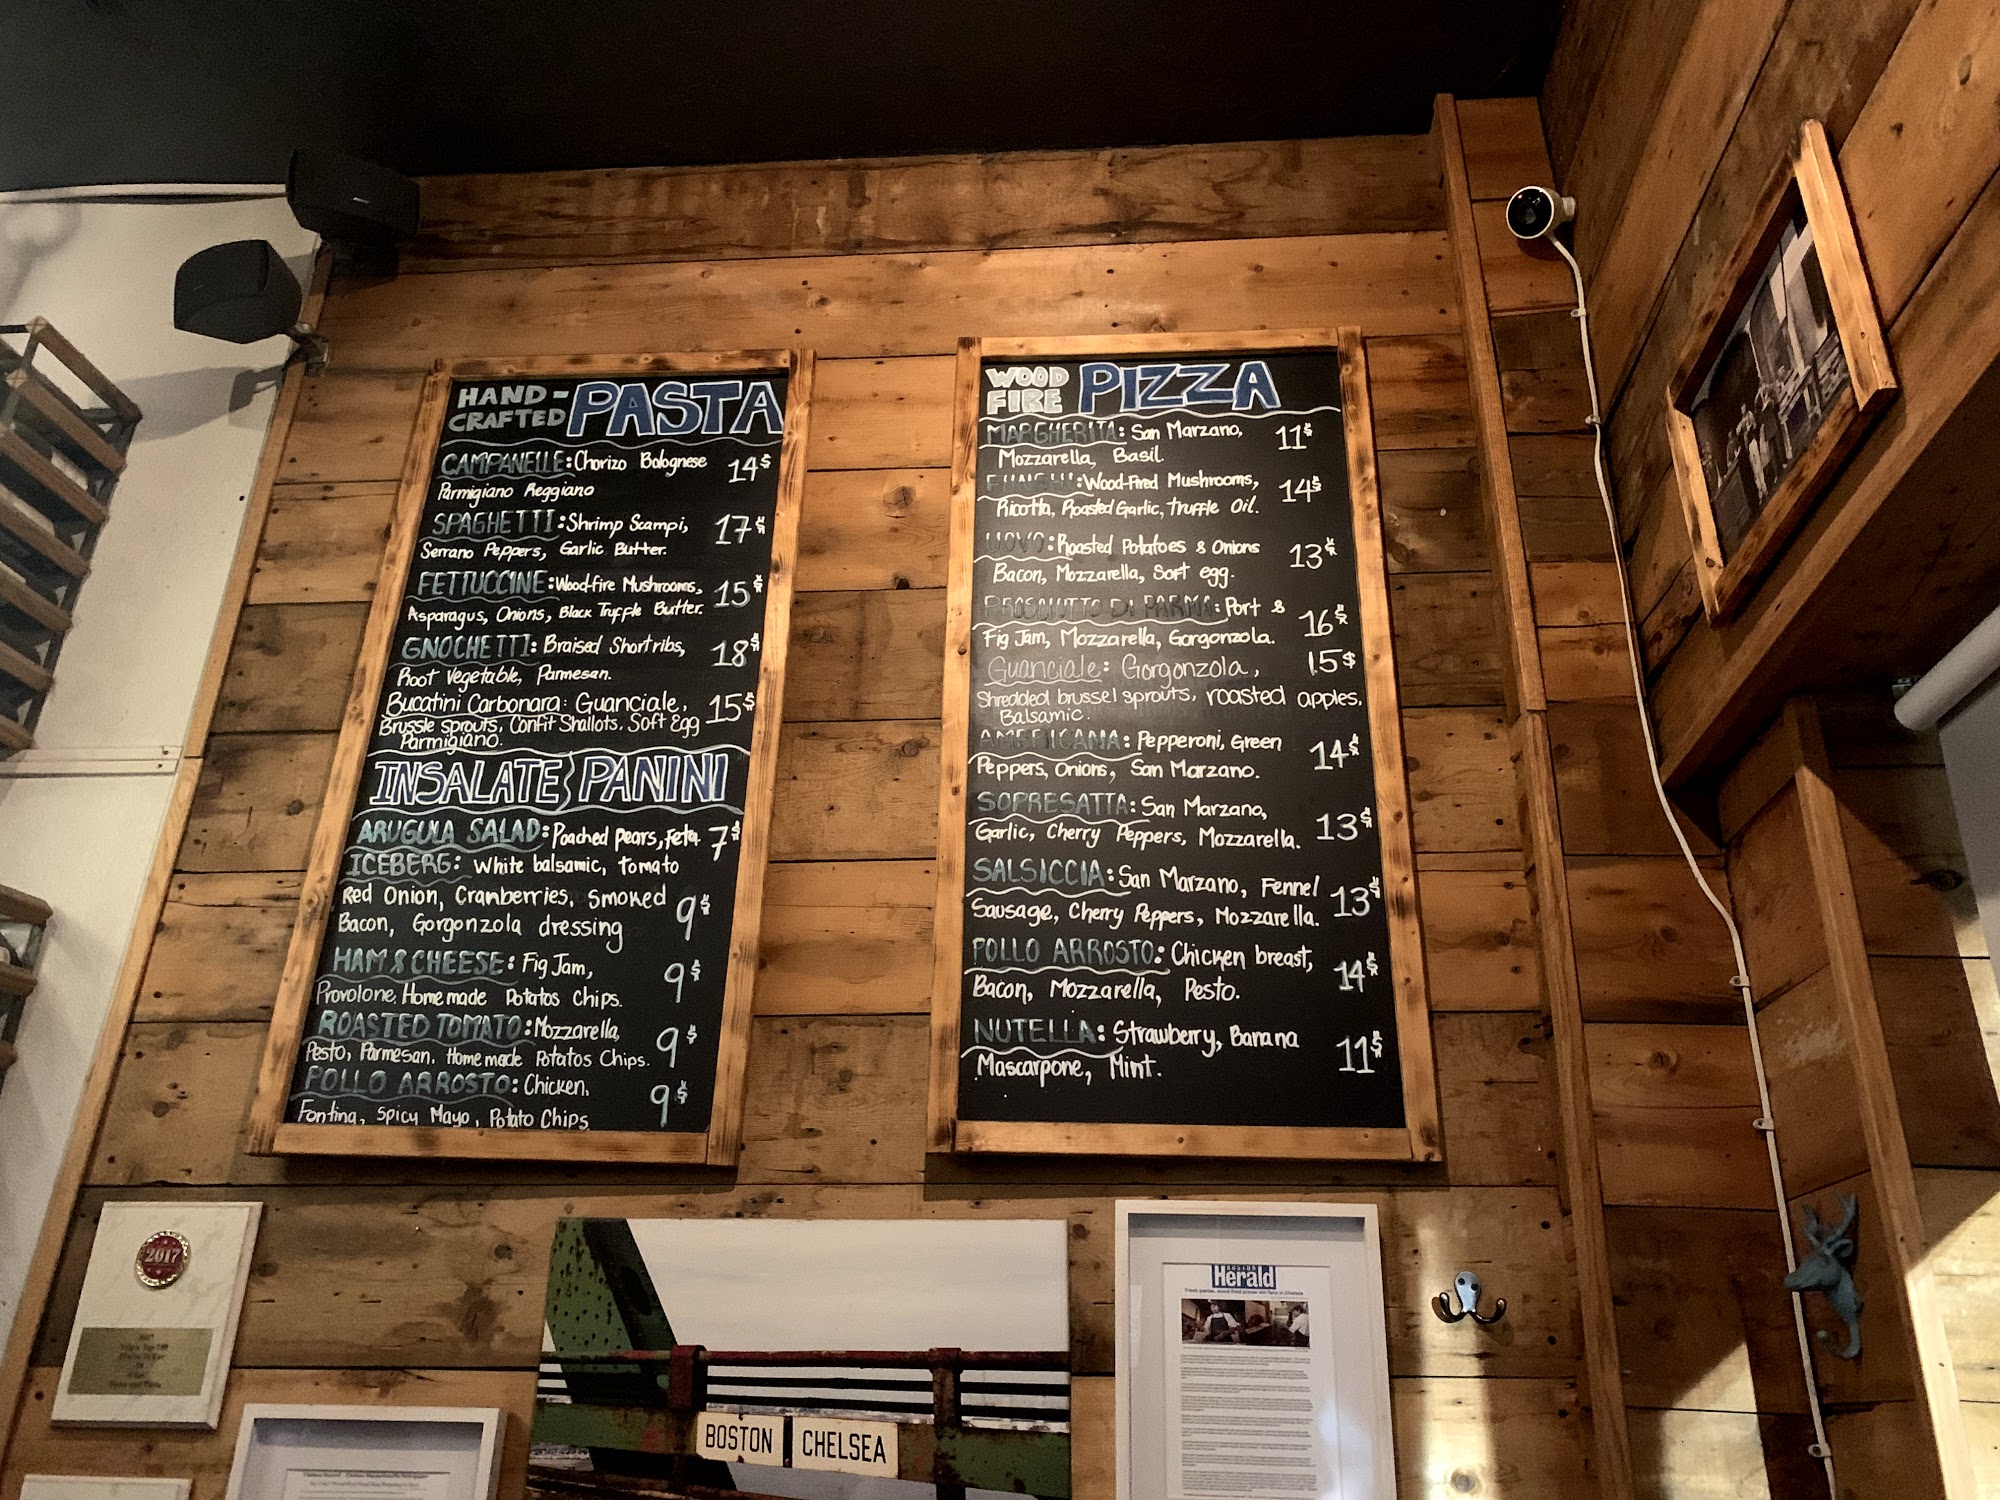 HAND-
CRAFTED PASTA
CAMPANELLE: Chorizo Bolognese 14$
Parmigiano Reggiano
SPAGHETTI: Shrimp Scampi, 17$
Serrano Peppers, Garlic Butter.
FETTUCCINE: Wood-fire Mushrooms, 15$
Asparagus, Onions, Black Truffle Butter.
GNOCHETTI: Braised Shortribs, 18$
Root Vegetable, Parmesan.
Bucatini Carbonara: Guanciale, 15$
Brussle sprouts, Confit Shallots, Soft Egg
Parmigiano.
INSALATE PANINI
ARUGULA SALAD: Poached pears, feta. 7$
ICEBERG: White balsamic, tomato
Red Onion, Cranberries, Smoked 9$
Bacon, Gorgonzola dressing
HAM & CHEESE: Fig Jam, 9$
Provolone, Homemade Potatos Chips.
ROASTED TOMATO: Mozzarella, 9$
Pesto, Parmesan, Homemade Potatos Chips.
POLLO ARROSTO: Chicken, 9$
Fontina, Spicy Mayo, Potato Chips.
WOOD
FIRE PIZZA
MARGHERITA: San Marzano, 11$
Mozzarella, Basil.
FUNGHI: Wood-Fired Mushrooms, 14$
Ricotta, Roasted Garlic, Truffle Oil.
UOVO: Roasted Potatoes & Onions 13$
Bacon, Mozzarella, Soft egg.
PROSCIUTTO DI PARMA: Port & 16$
Fig Jam, Mozzarella, Gorgonzola.
Guanciale: Gorgonzola, 15$
Shredded brussel sprouts, roasted apples,
Balsamic.
AMERICANA: Pepperoni, Green 14$
Peppers, Onions, San Marzano.
SOPRESATTA: San Marzano, 13$
Garlic, Cherry Peppers, Mozzarella.
SALSICCIA: San Marzano, Fennel 13$
Sausage, Cherry Peppers, Mozzarella.
POLLO ARROSTO: Chicken breast, 14$
Bacon, Mozzarella, Pesto.
NUTELLA: Strawberry, Banana 11$
Mascarpone, Mint.
2017
BOSTON CHELSEA
BOSTON
Herald
Fresh pastas, wood-fired pizzas win fans in Chelsea